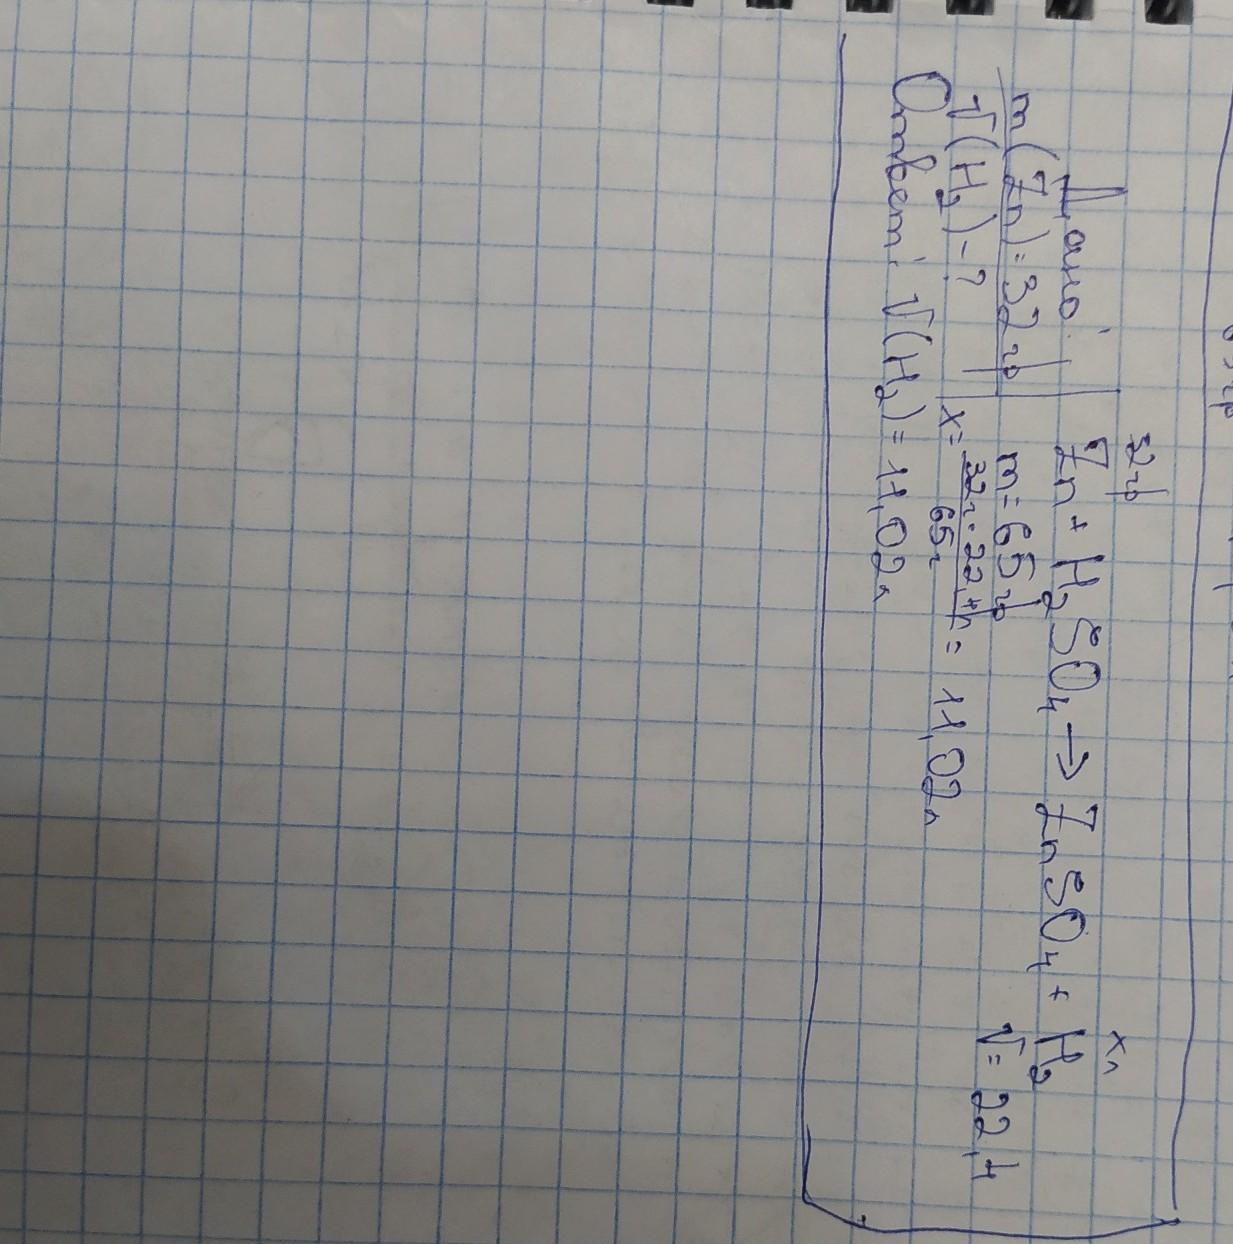 Дано:
m(Zn)=32гр
V(H₂)-?
32гр
хл
Zn + H₂SO₄ → ZnSO₄ + H₂
m=65гр
V=22,4
x= 32г·22,4л / 65г = 11,02л
Ответ: V(H₂)=11,02л